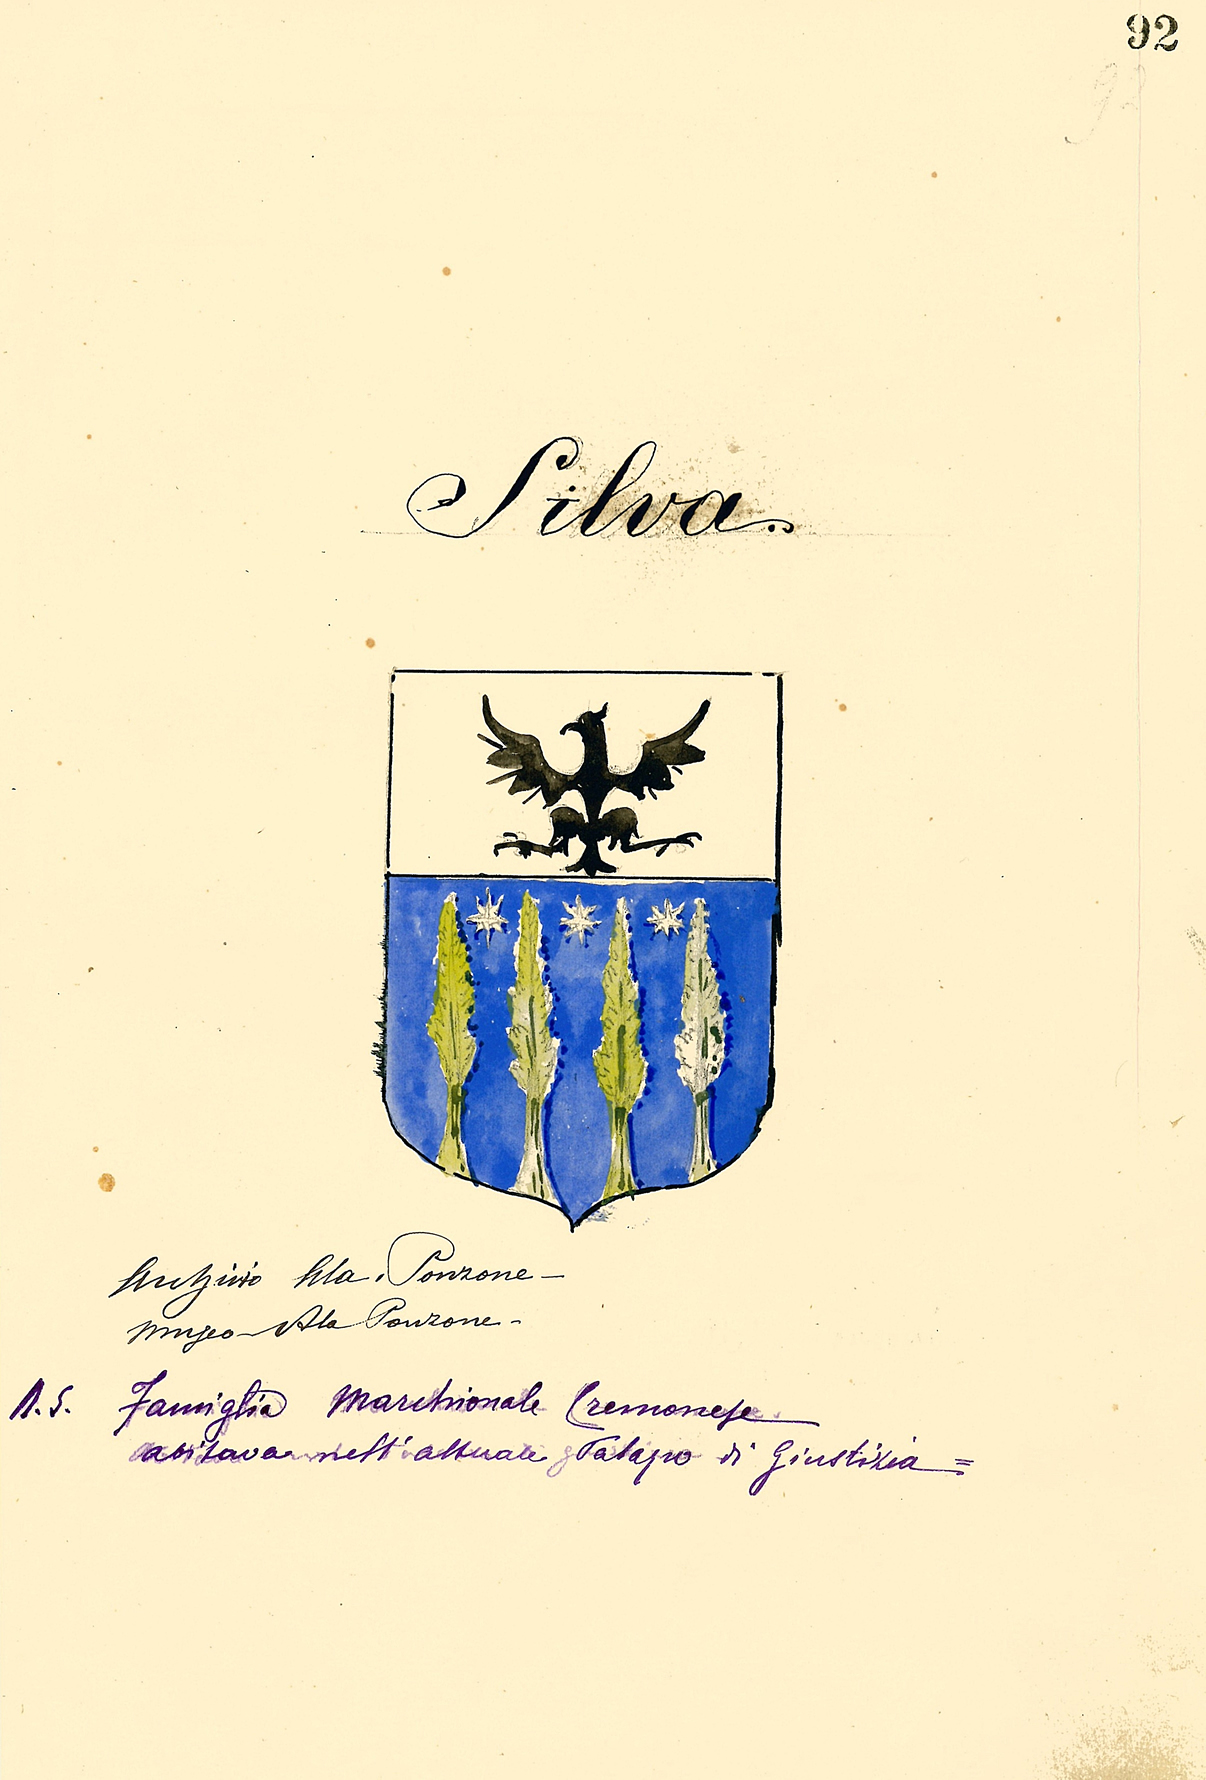 92
92
Silva.
Archivio Ala. Ponzone -
Museo - Ala Ponzone -
A.S. Famiglia Marchionale Cremonese
abitava nell' attuale Palazzo di Giustizia =